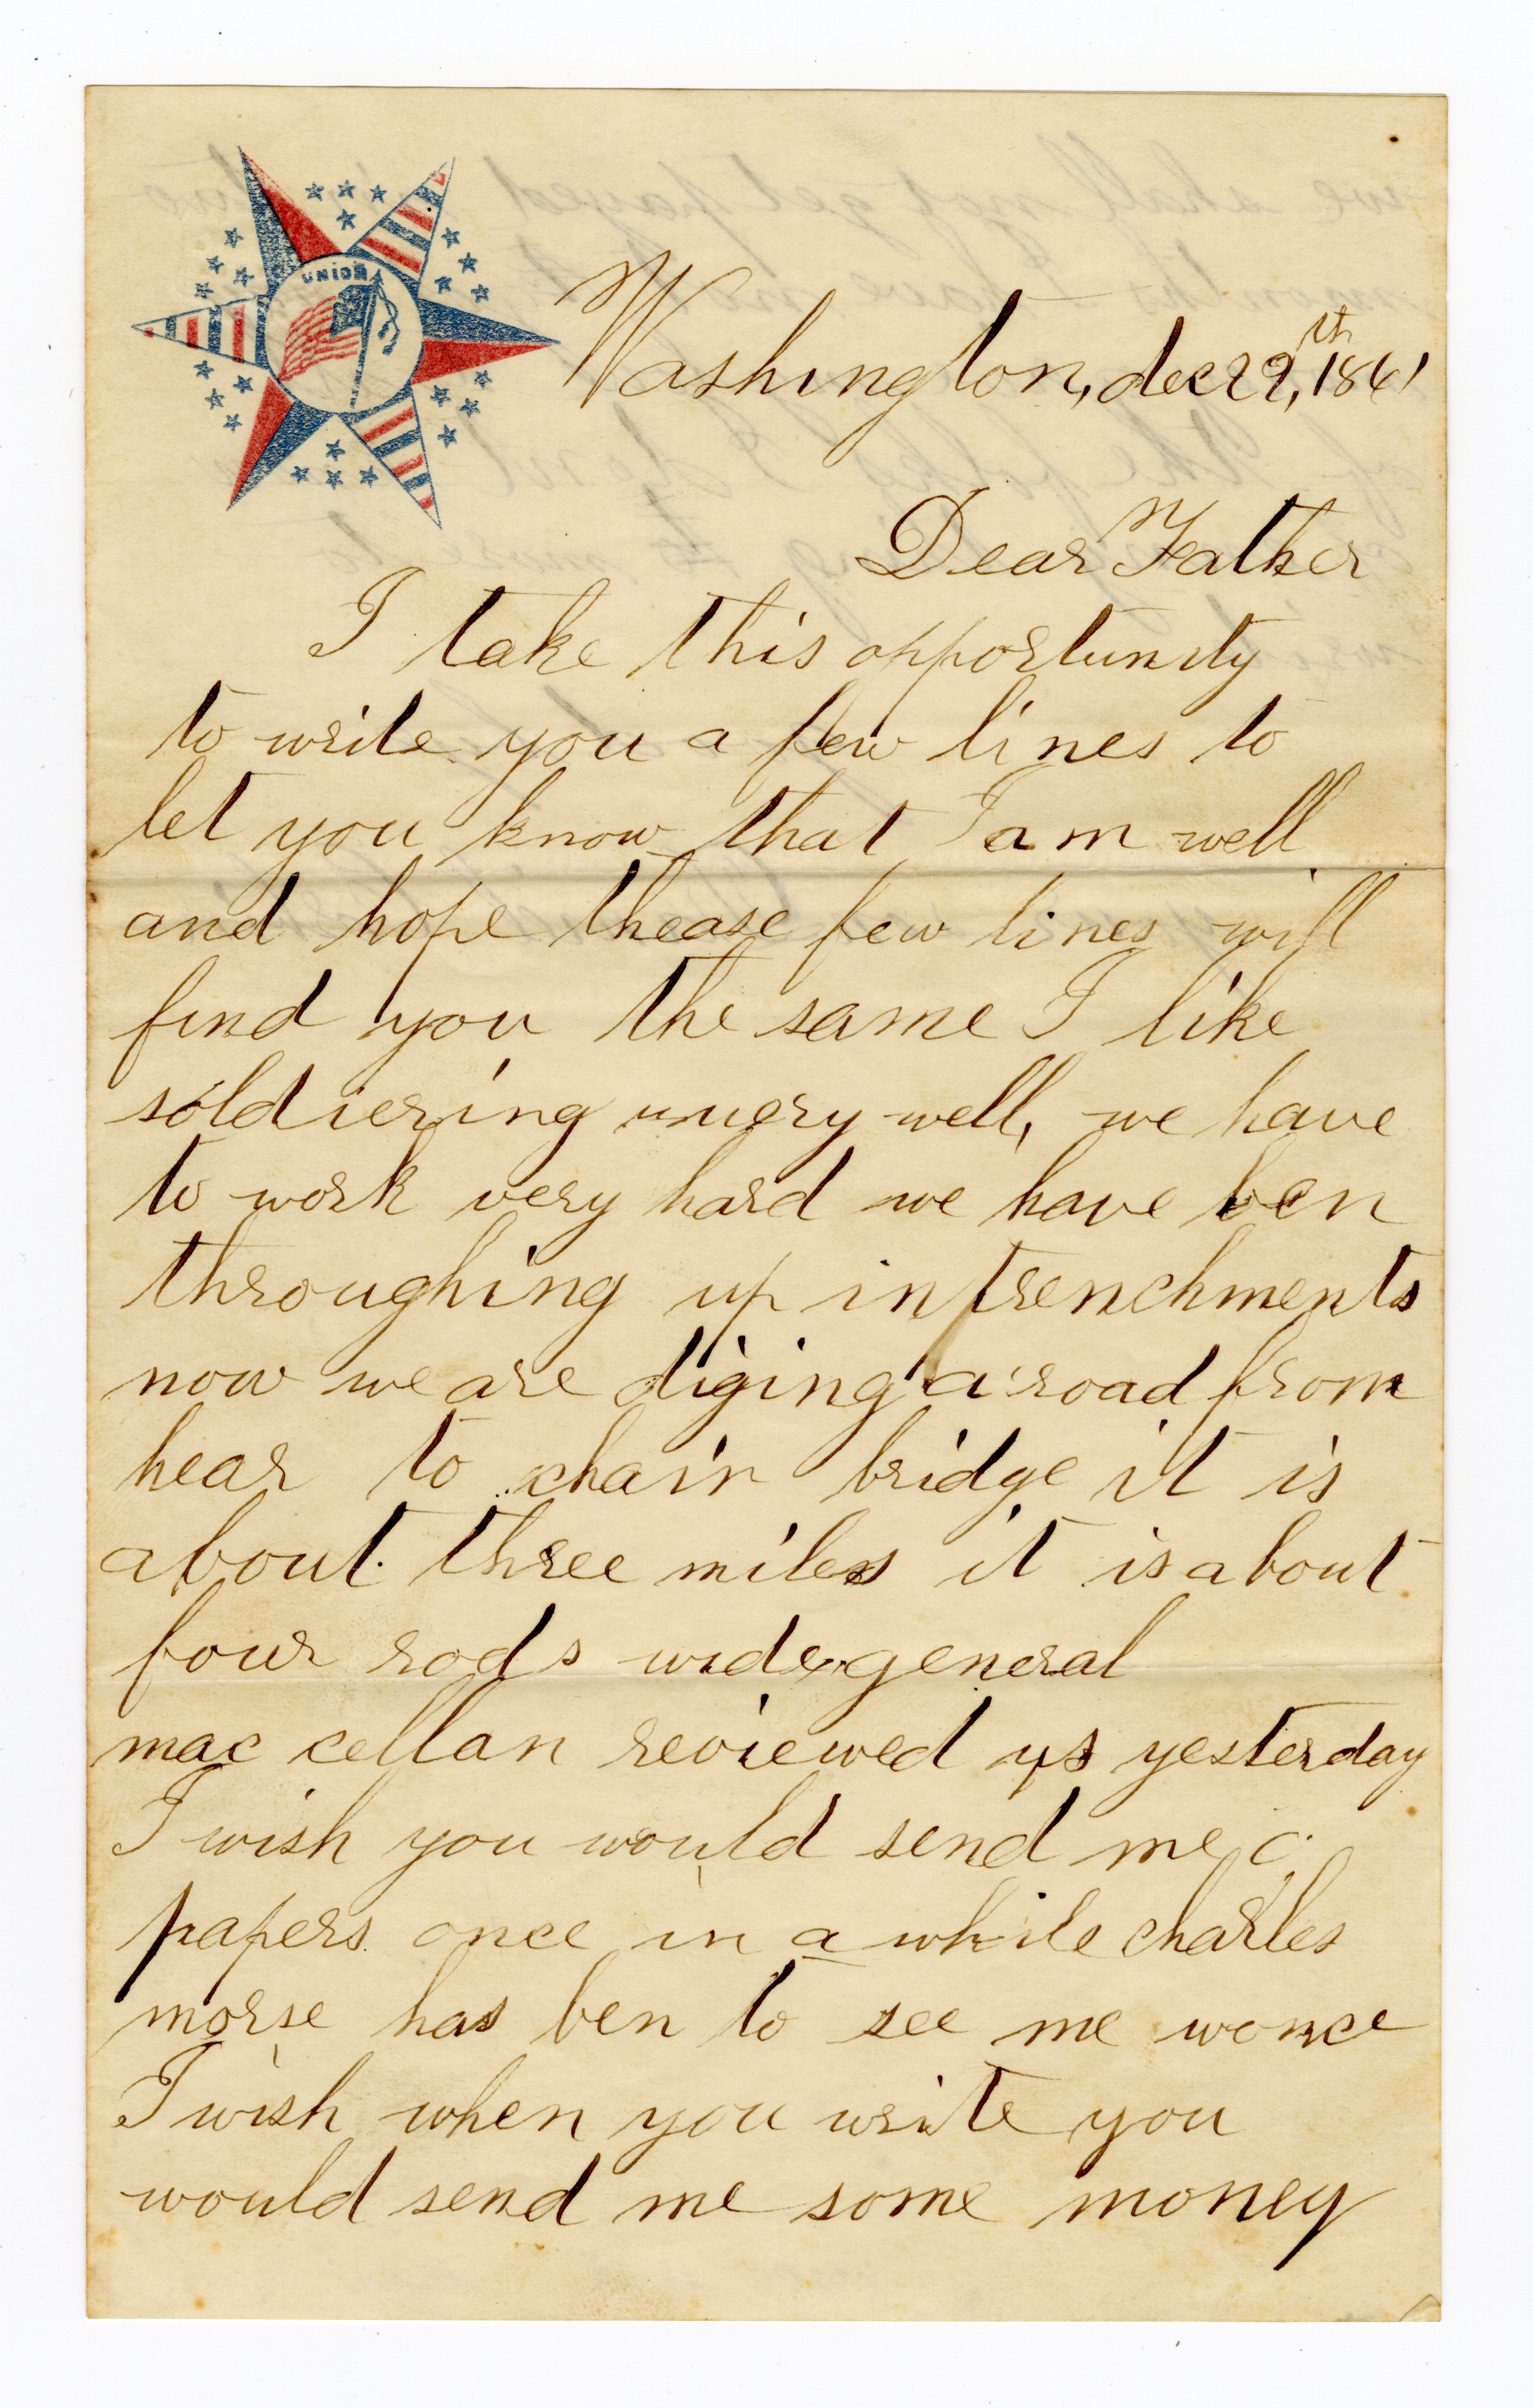 UNION
Washington, dec 29, th 1861
Dear Father
I take this opportunity
to write you a few lines to
let you know that I am well
and hope thease few lines will
find you the same I like
soldiering very well, we have
to work very hard we have ben
throughing up intrenchments
now we are diging a road from
hear to chain bridge it is
about three miles it is about
four rods wide general
mac cellan reviewed us yesterday
I wish you would send me
papers once in a while charles
morse has ben to see me wonce
I wish when you write you
would send me some money